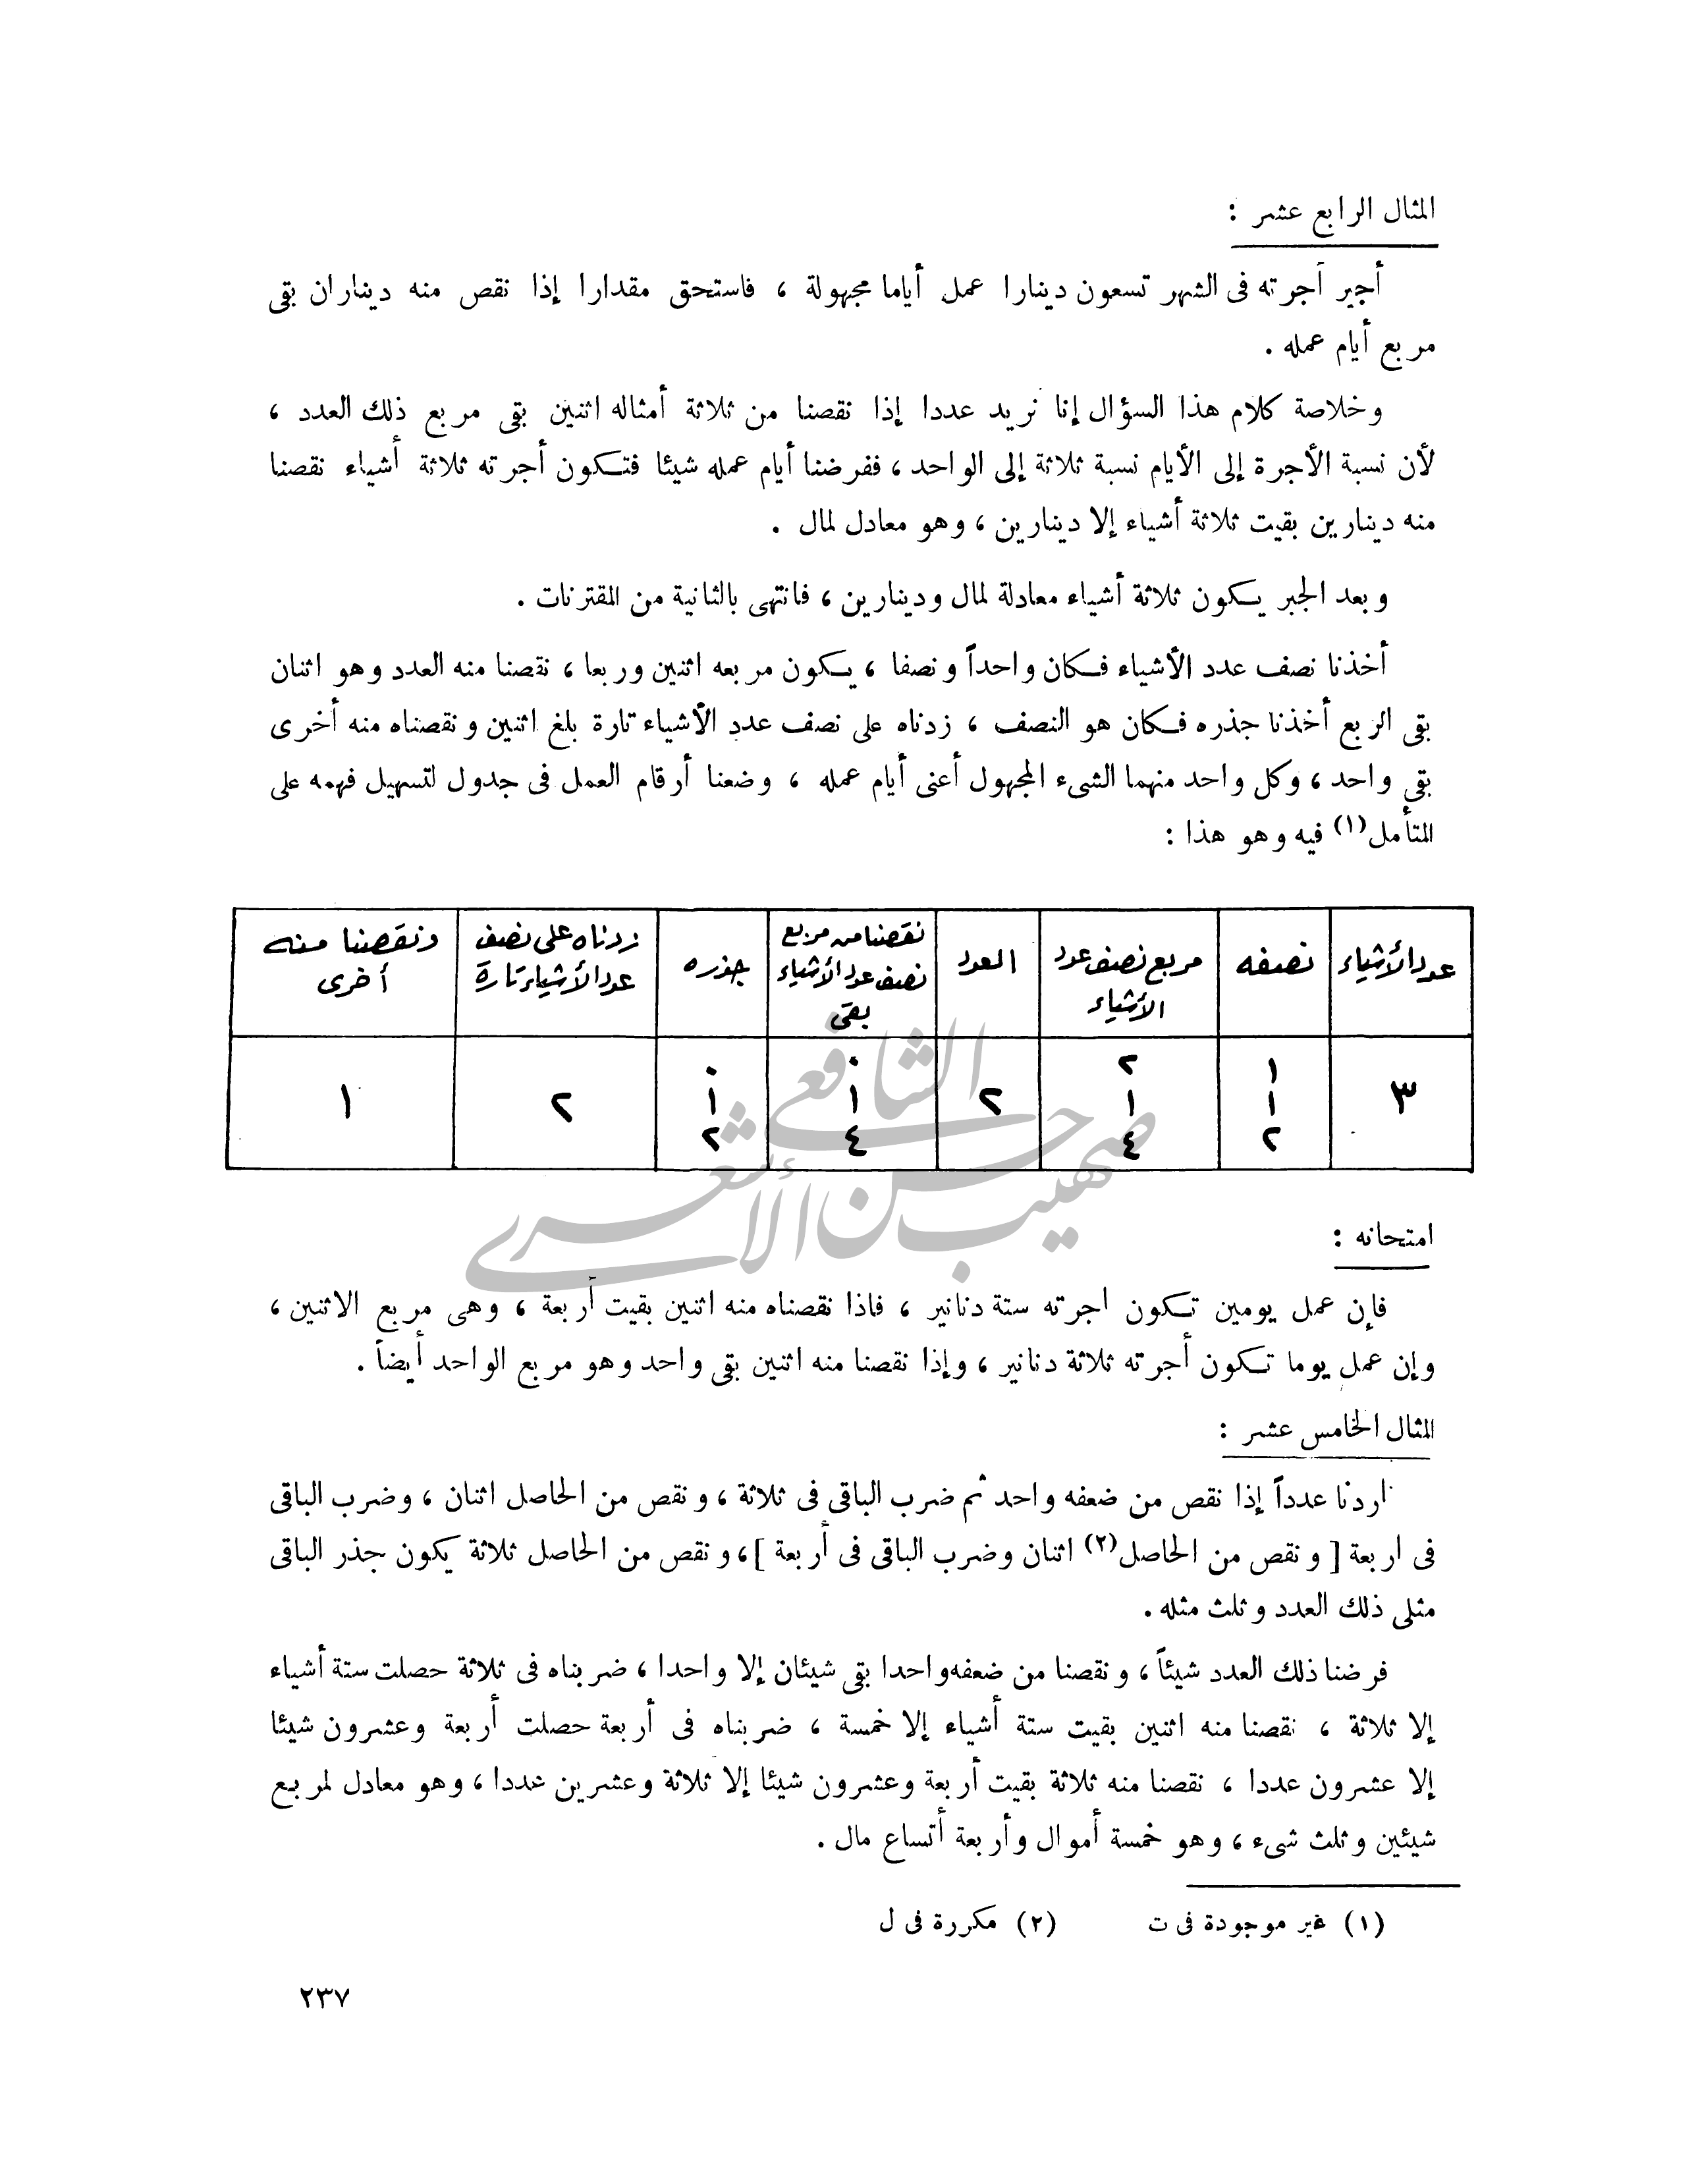 المثال الرابع عشر :
أجير أجرته فى الشهر تسعون دينارا عمل أياما مجهولة ، فاستحق مقدارا إذا نقص منه ديناران بقى
مربع أيام عمله .
وخلاصة كلام هذا السؤال إنا نريد عددا إذا نقصنا من ثلاثة أمثاله اثنين بقى مربع ذلك العدد ،
لأن نسبة الأجرة إلى الأيام نسبة ثلاثة إلى الواحد ، ففرضنا أيام عمله شيئا فتكون أجرته ثلاثة أشياء نقصنا
منه دينارين بقيت ثلاثة أشياء إلا دينارين ، وهو معادل لمال .
وبعد الجبر يكون ثلاثة أشياء معادلة لمال ودينارين ، فانتهى بالثانية من المقترنات .
أخذنا نصف عدد الأشياء فكان واحداً ونصفا ، يكون مربعه اثنين وربعا ، نقصنا منه العدد وهو اثنان
بقى الربع أخذنا جذره فكان هو النصف ، زدناه على نصف عدد الأشياء تارة بلغ اثنين ونقصناه منه أخرى
بقى واحد ، وكل واحد منهما الشىء المجهول أعنى أيام عمله ، وضعنا أرقام العمل فى جدول لتسهيل فهمه على
المتأمل(١) فيه وهو هذا :
عدد الأشياء	نصفه	مربع نصف عدد الأشياء	العدد	نقصنا من مربع نصف عدد الأشياء بقى	جذره	زدناه على نصف عدد الأشياء تارة	ونقصنا منه أخرى
٣	١ ١ ٢	٢ ١ ٤	٢	٠ ١ ٤	٠ ١ ٢	٢	١
صهيب حسن الشافعي الأشعري
امتحانه :
فإن عمل يومين تكون اجرته ستة دنانير ، فاذا نقصناه منه اثنين بقيت أربعة ، وهى مربع الاثنين ،
وإن عمل يوما تكون أجرته ثلاثة دنانير ، وإذا نقصنا منه اثنين بقى واحد وهو مربع الواحد أيضاً .
المثال الخامس عشر :
اردنا عدداً إذا نقص من ضعفه واحد ثم ضرب الباقى فى ثلاثة ، ونقص من الحاصل اثنان ، وضرب الباقى
فى اربعة [ ونقص من الحاصل(٢) اثنان وضرب الباقى فى أربعة ] ، ونقص من الحاصل ثلاثة يكون جذر الباقى
مثلى ذلك العدد وثلث مثله .
فرضنا ذلك العدد شيئاً ، ونقصنا من ضعفه واحدا بقى شيئان إلا واحدا ، ضربناه فى ثلاثة حصلت ستة أشياء
إلا ثلاثة ، نقصنا منه اثنين بقيت ستة أشياء إلا خمسة ، ضربناه فى أربعة حصلت أربعة وعشرون شيئا
إلا عشرون عددا ، نقصنا منه ثلاثة بقيت أربعة وعشرون شيئا إلا ثلاثة وعشرين عددا ، وهو معادل لمربع
شيئين وثلث شىء ، وهو خمسة أموال وأربعة أتساع مال .
(١) غير موجودة فى ت (٢) مكررة فى ل
٢٣٧